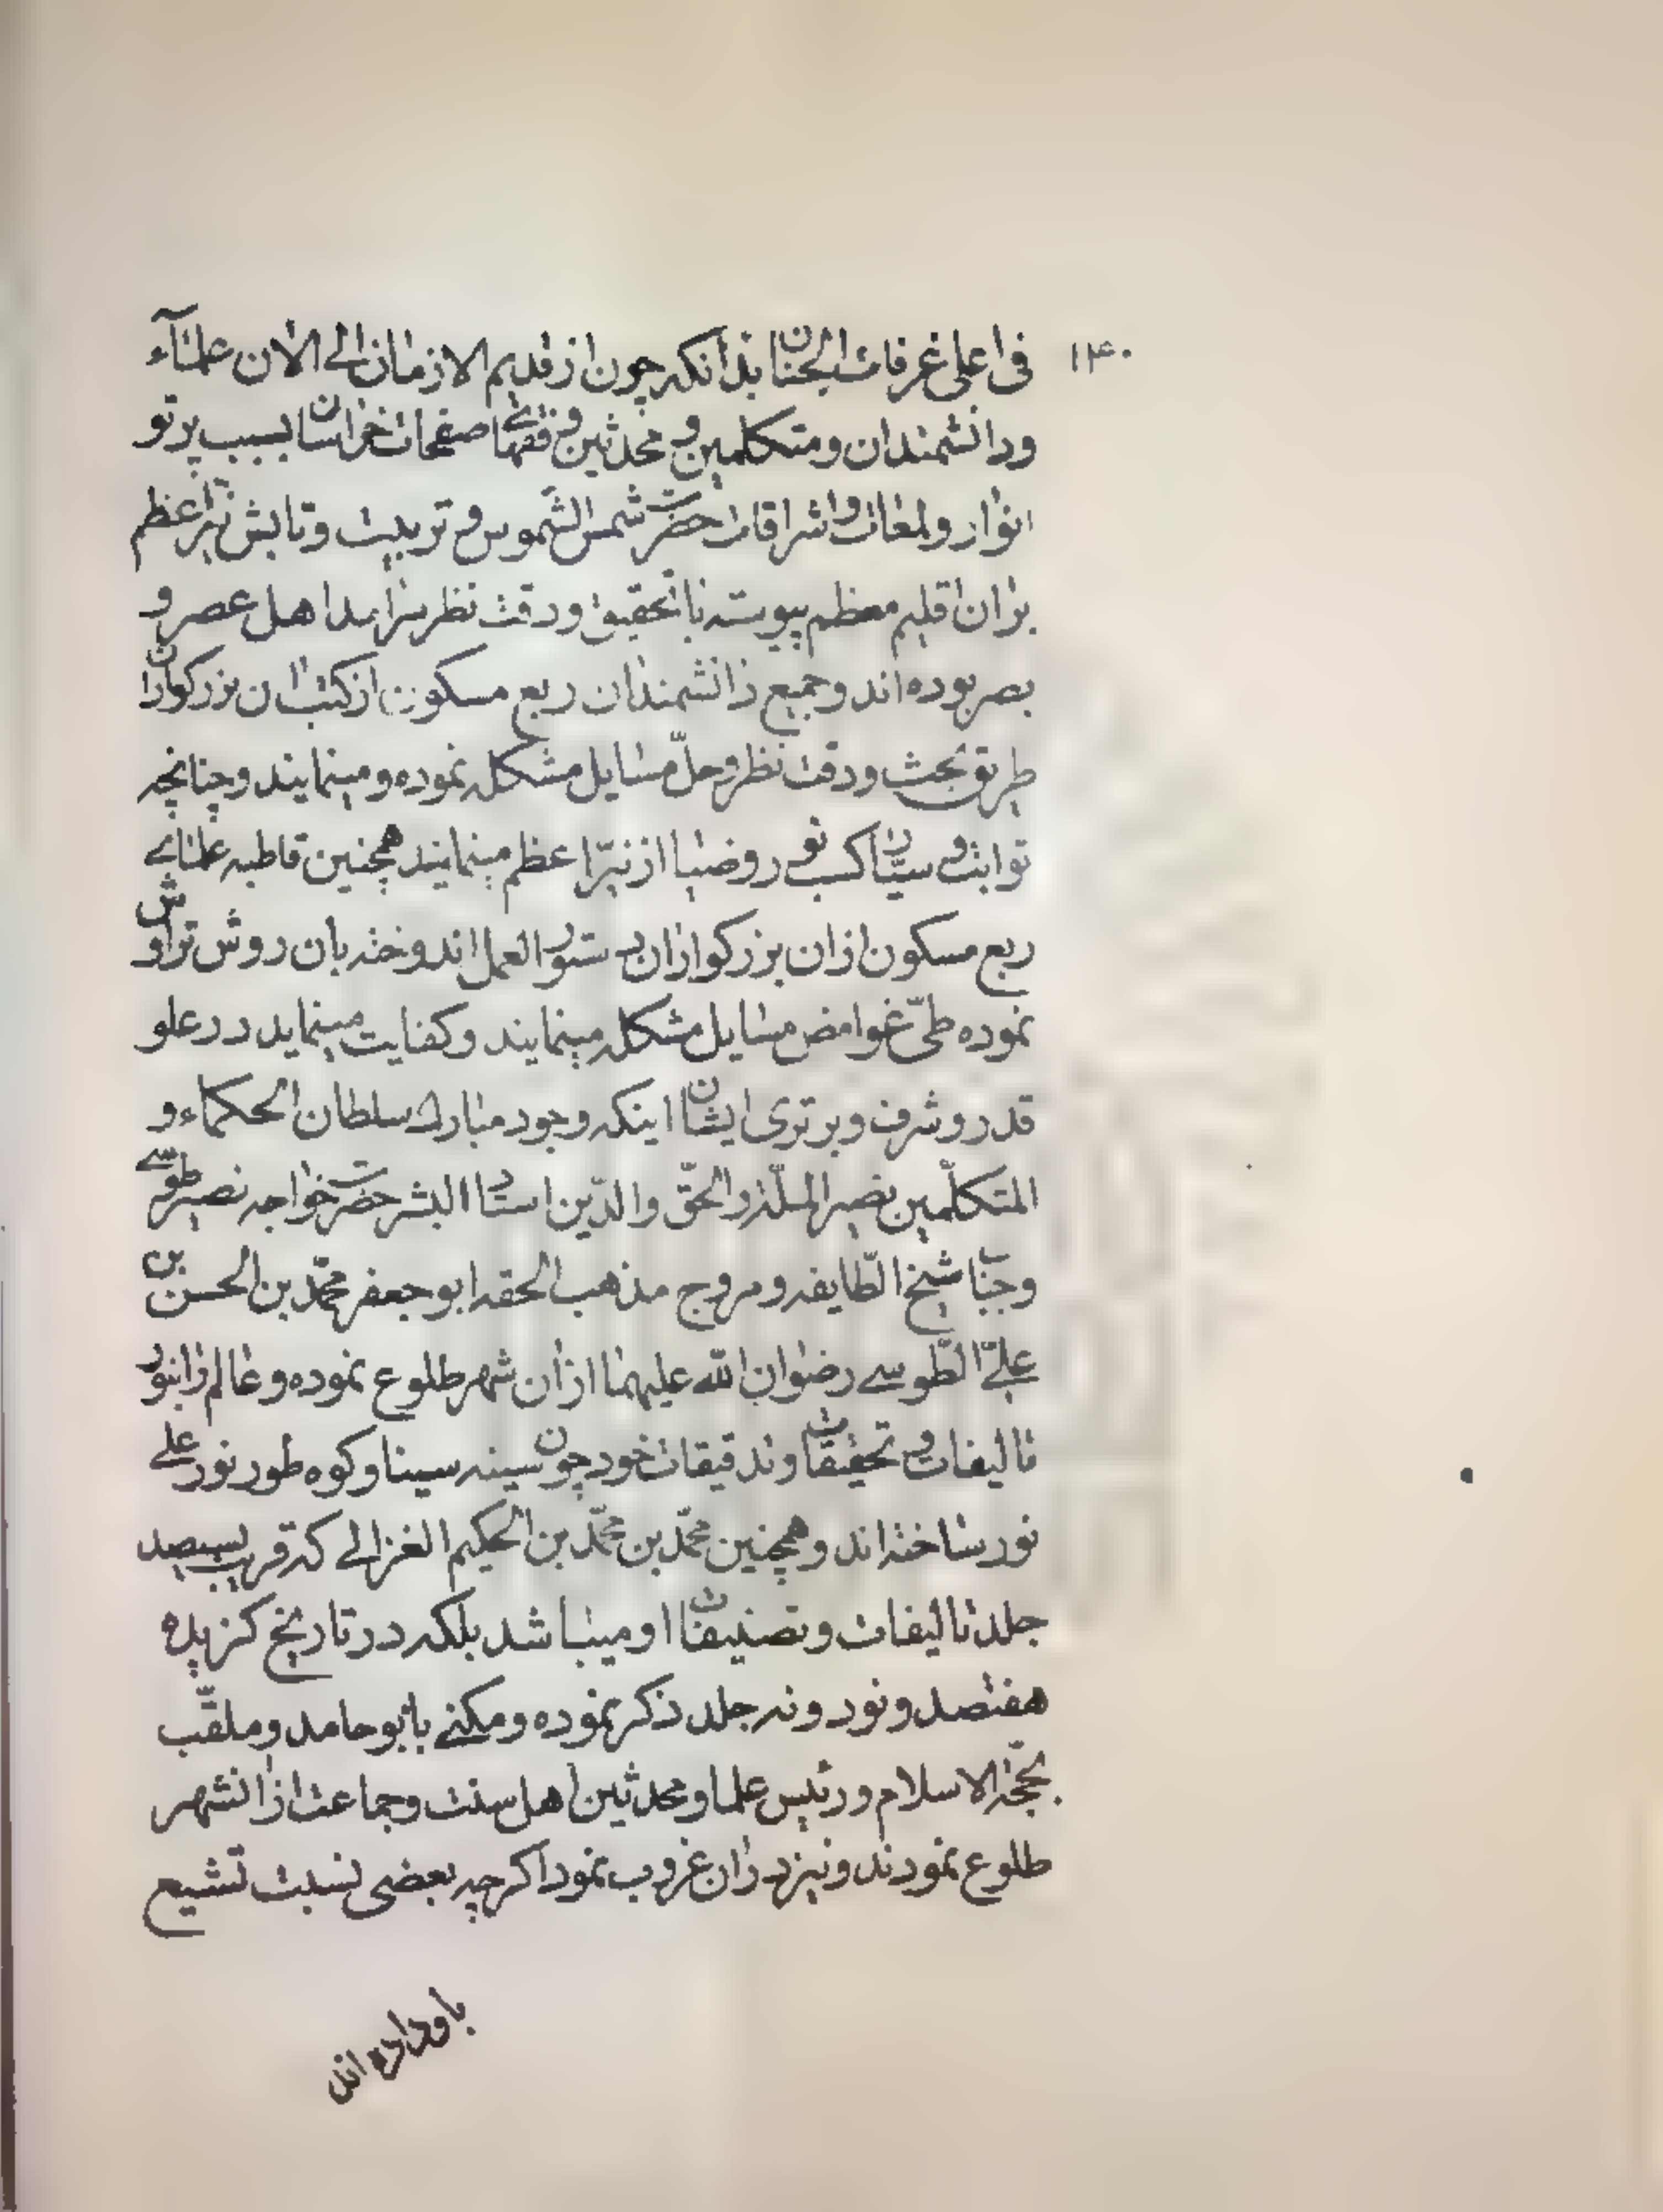 ۱۴۰
فی اعلی غرفات الجنان بدانکه چون از قدیم الازمان الی الآن علمآء
ودانشمندان ومتکلمین و محدثین و فقهای صفحات خراسان بسبب پرتو
انوار ولمعات واشراقات حضرت شمس الشموس و تربیت وتابش نیّر اعظم
بران اقلیم معظم پیوسته باتحقیق ودقت نظر سرآمد اهل عصر و
بصر بوده اند وجمیع دانشمندان ربع مسکون از کتب آن بزرکواران
طریق بحث ودقت نظر وحلّ مسایل مشکله نموده ومینمایند وچنانچه
ثوابت و سیّار کسب نور وضیا از نیّر اعظم مینمایند همچنین قاطبه علمای
ربع مسکون از ان بزرکواران دستور العمل اندوخته بان روش تراوش
نموده طیّ غوامض مسایل مشکله مینمایند وکفایت مینماید در علو
قدر وشرف وبرتری ایشان اینکه وجود مبارک سلطان الحکماء و
المتکلّمین نصیر الملّة والحقّ والدّین استاد البشر حضرت خواجه نصیر طوسی
وجناب شیخ الطّایفه ومروج مذهب الحقه ابو جعفر محمّد بن الحسن بن
علیّ الطّوسی رضوان الله علیهما از آن شهر طلوع نموده وعالم را بنور
تالیفات و تحقیقات وتدقیقات خود چون سینه سینا وکوه طور نور علی
نور ساخته اند وهمچنین محمّد بن محمّد بن الحکیم الغزالی که قریب بسیصد
جلد تالیفات وتصنیفات او میباشد بلکه در تاریخ کزیده
هفتصد ونود ونه جلد ذکر نموده ومکنی بابو حامد وملقّب
بحجّة الاسلام ورئیس علما ومحدثین اهل سنت وجماعت از انشهر
طلوع نمودند ونیز در ان غروب نمود اکرچه بعضی نسبت تشیع
باو داده اند